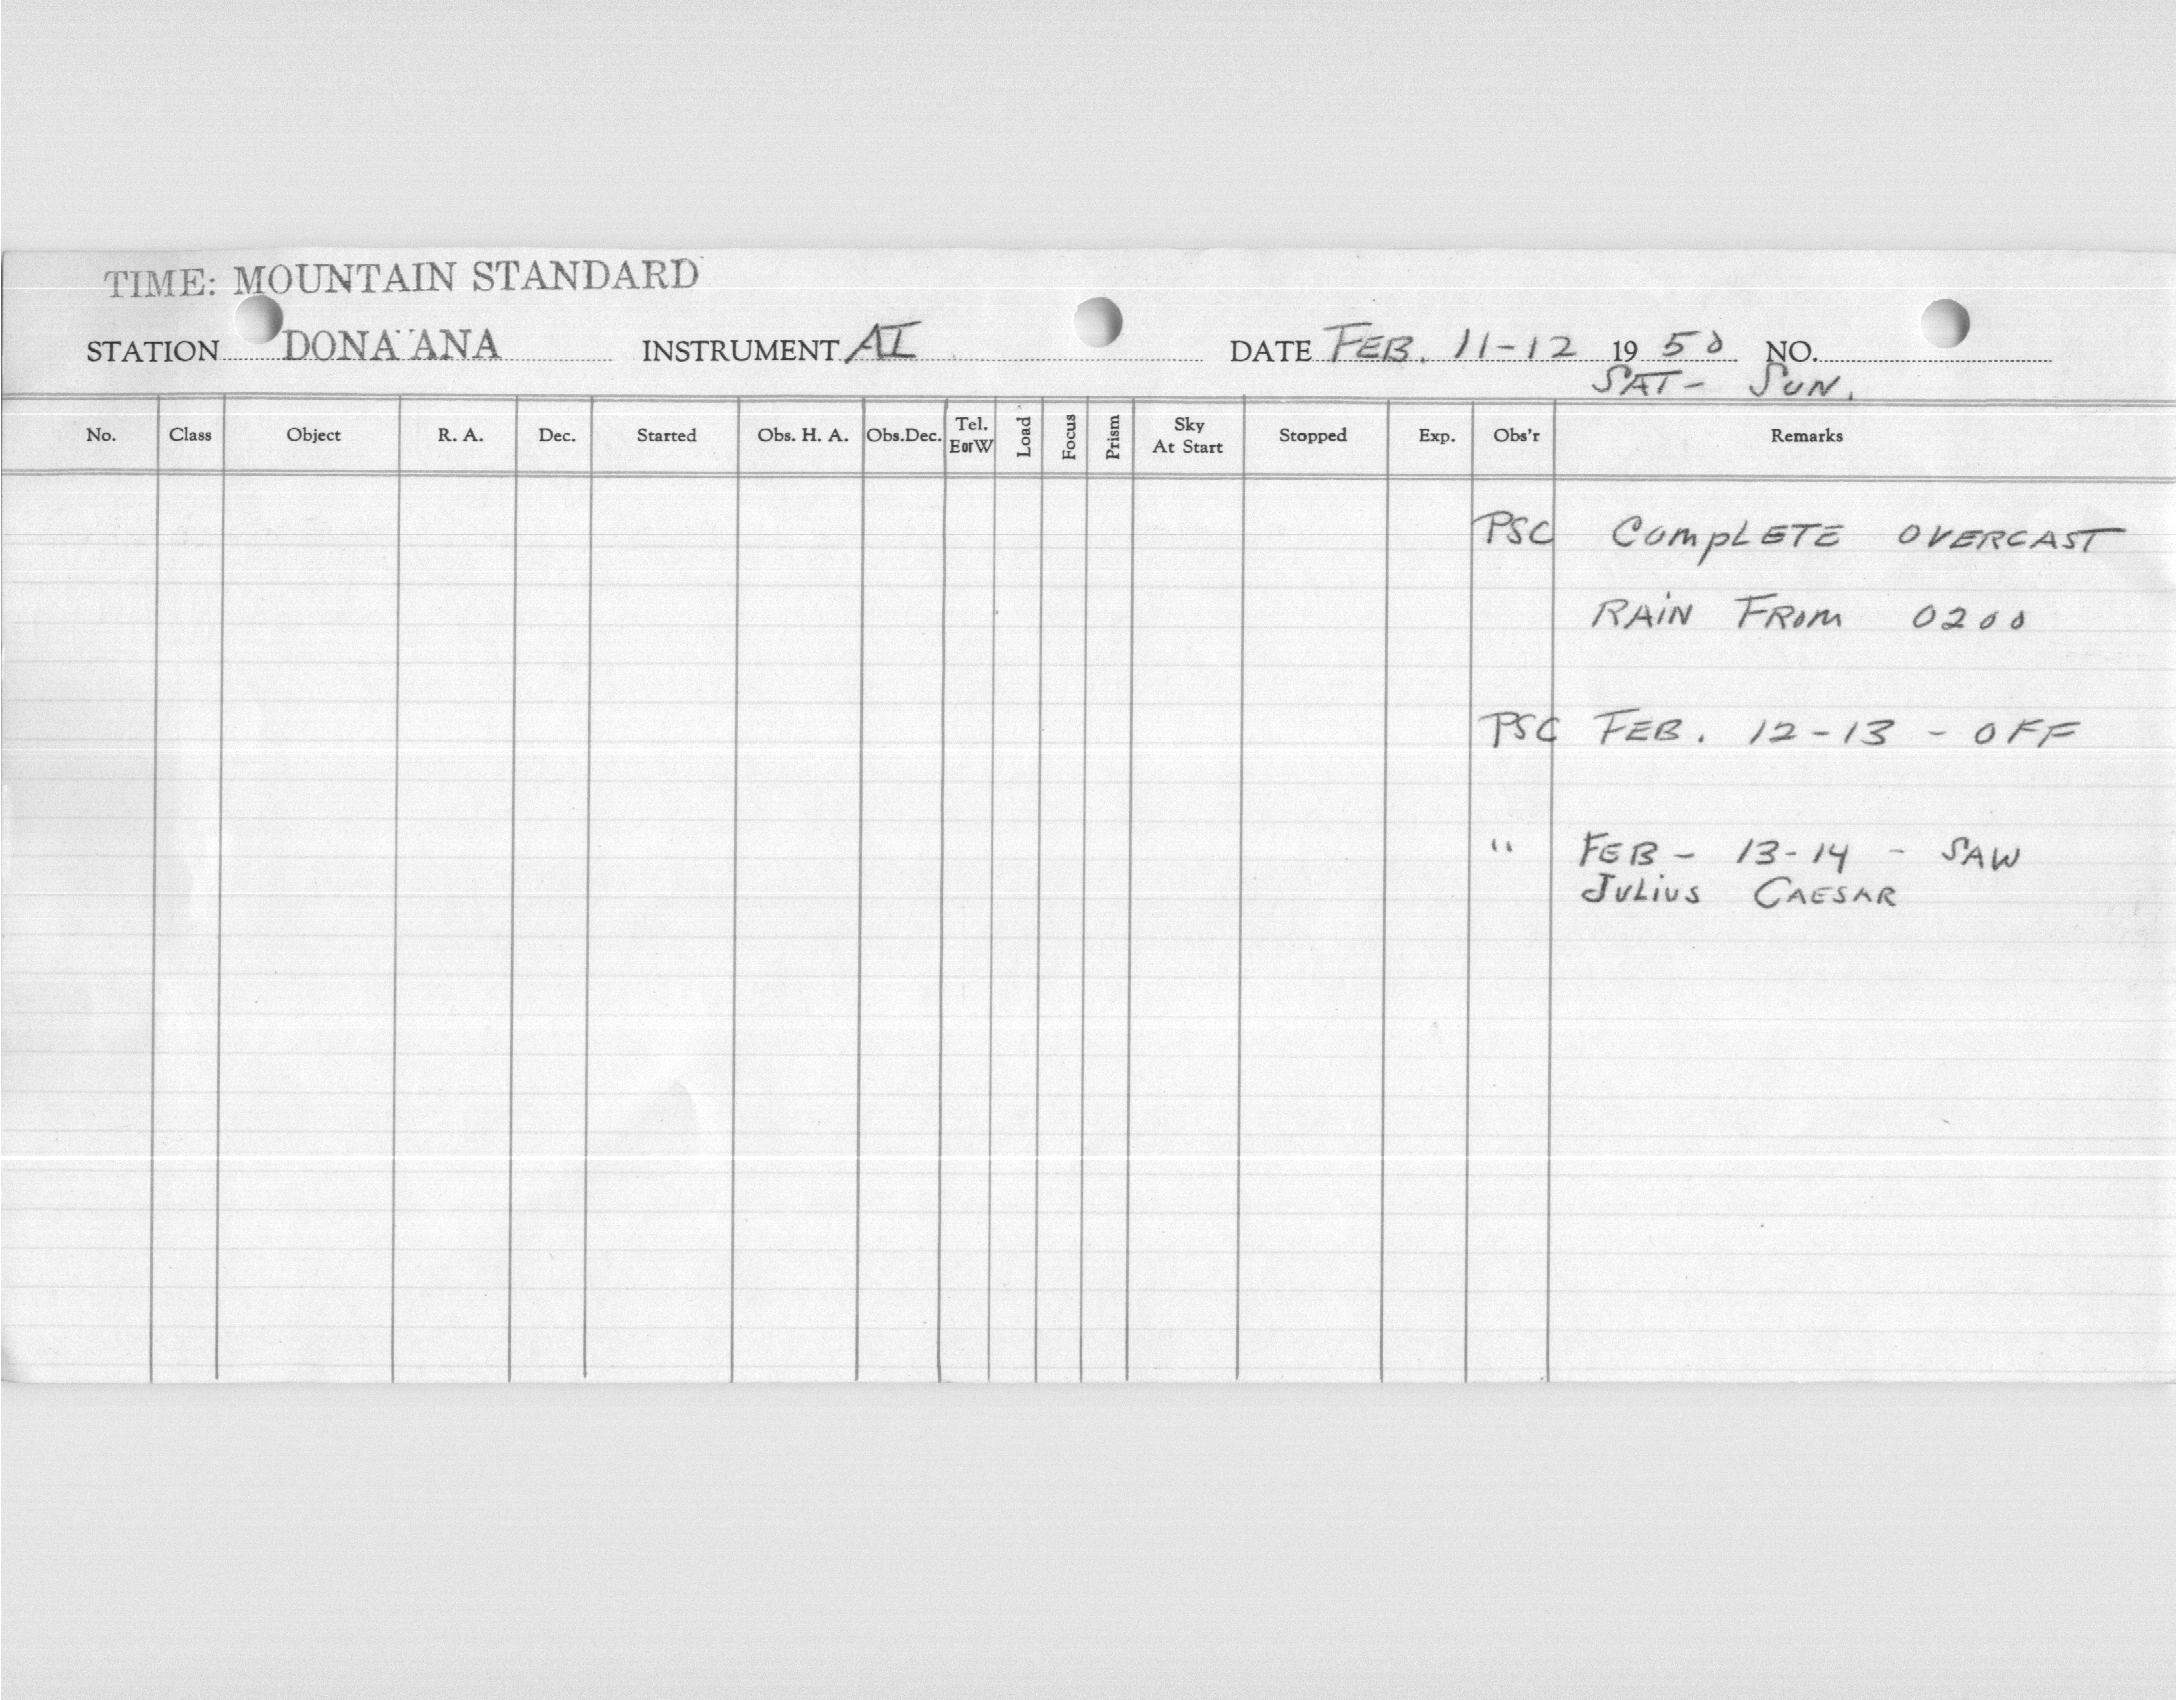 TIME: MOUNTAIN STANDARD
STATION DONA ANA INSTRUMENT AI DATE FEB. 11-12 1950 NO.
SAT- SUN.
No. Class Object R. A. Dec. Started Obs. H. A. Obs.Dec. Tel. E or W Load Focus Prism Sky At Start Stopped Exp. Obs'r Remarks
PSC COMPLETE OVERCAST
RAIN FROM 0200
PSC FEB. 12-13 - OFF
" FEB - 13-14 - SAW
JULIUS CAESAR